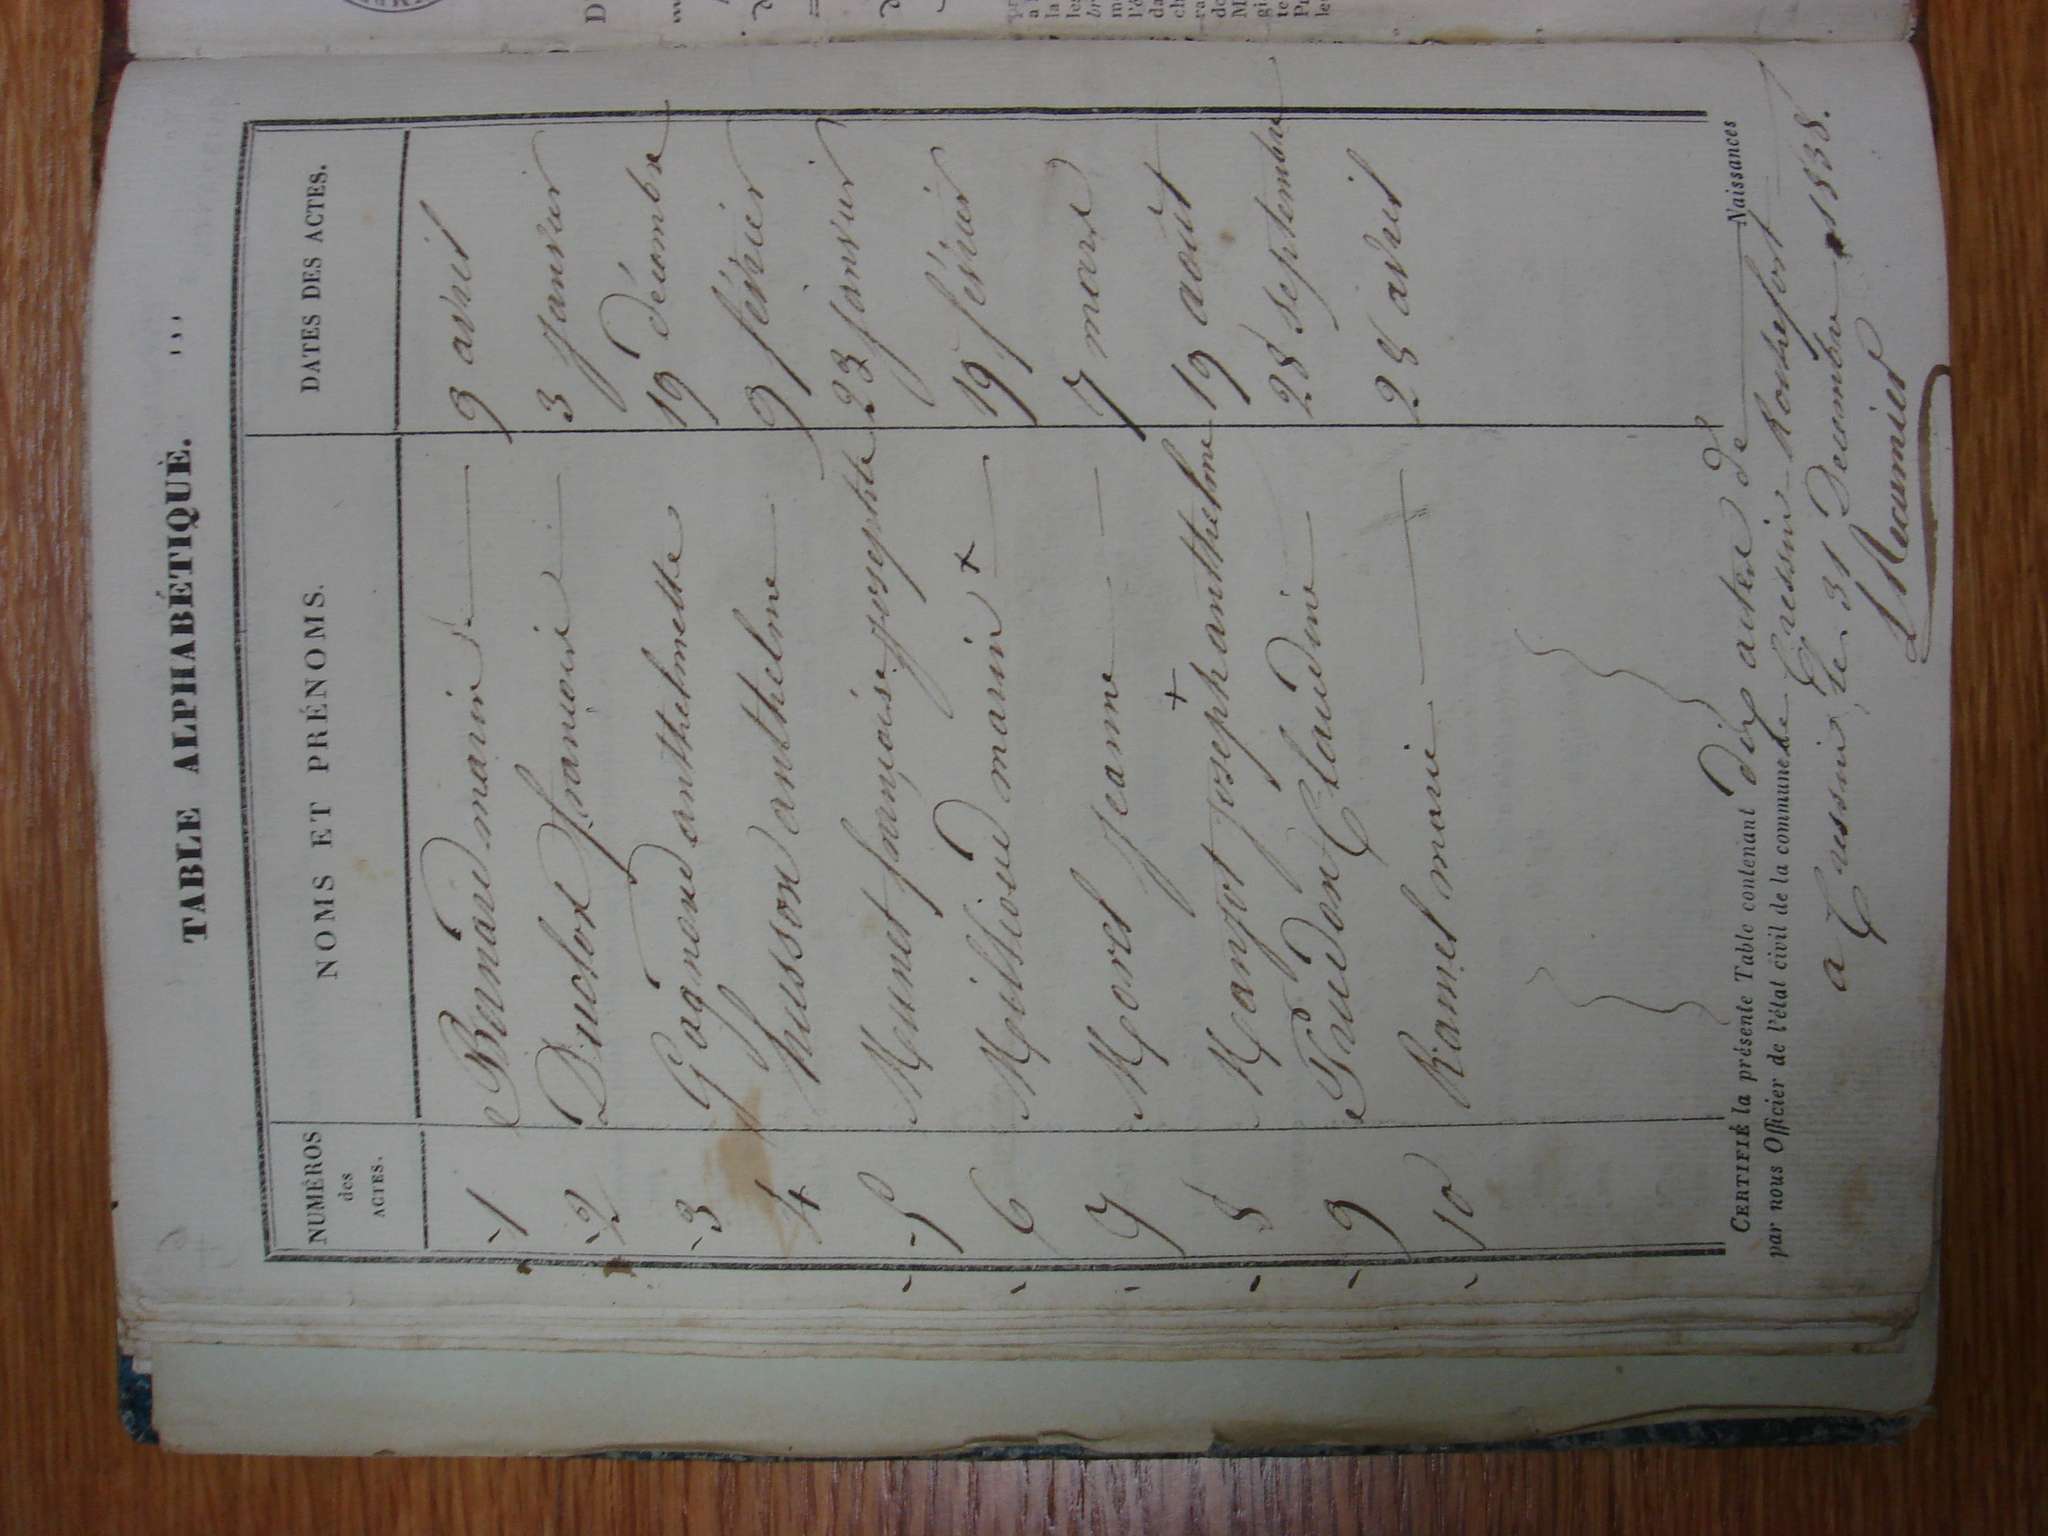 TABLE ALPHABÉTIQUE.
NUMÉROS des ACTES. NOMS ET PRÉNOMS. DATES DES ACTES.
1 Bernard marin 9 avril
2 Duclos françois 3 janvier
3 Gognard anthelmette 19 décembre
4 husson anthelme 9 février
5 Meunet françoise josephte 23 janvier
6 Millioud marin 19 février
7 Morel jeanne 7 mars
8 Manjot joseph anthelme 19 août
9 Claudine 28 septembre
10 Ramel marie 28 avril
CERTIFIÉ la présente Table contenant dix actes de Naissances
par nous Officier de l'état civil de la commune de Cressin-Rochefort
a Cressin le 31 Decembre 1838.
Récamier